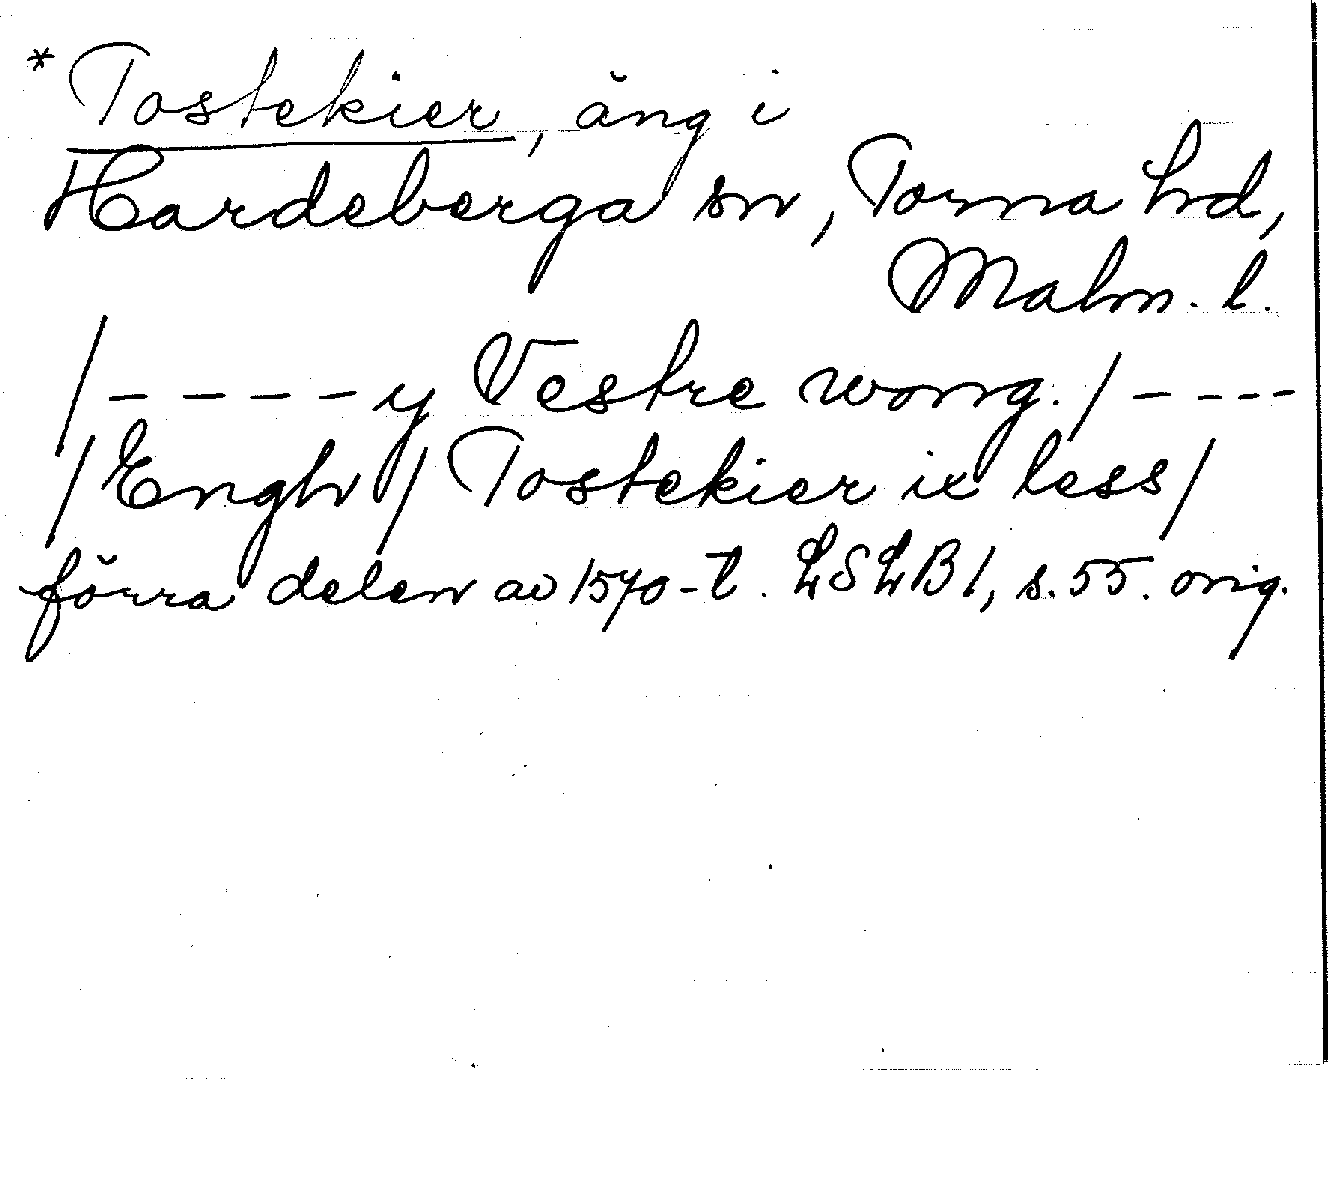 * Tostekier, äng i
Hardeberga sn, Torna hd,
Malm. l.
/ - - - - - y Vestre wong. / - - - -
/ Engh / Tostekier ix less /
förra delen av 1570-t. LSLB1, s. 55. orig.